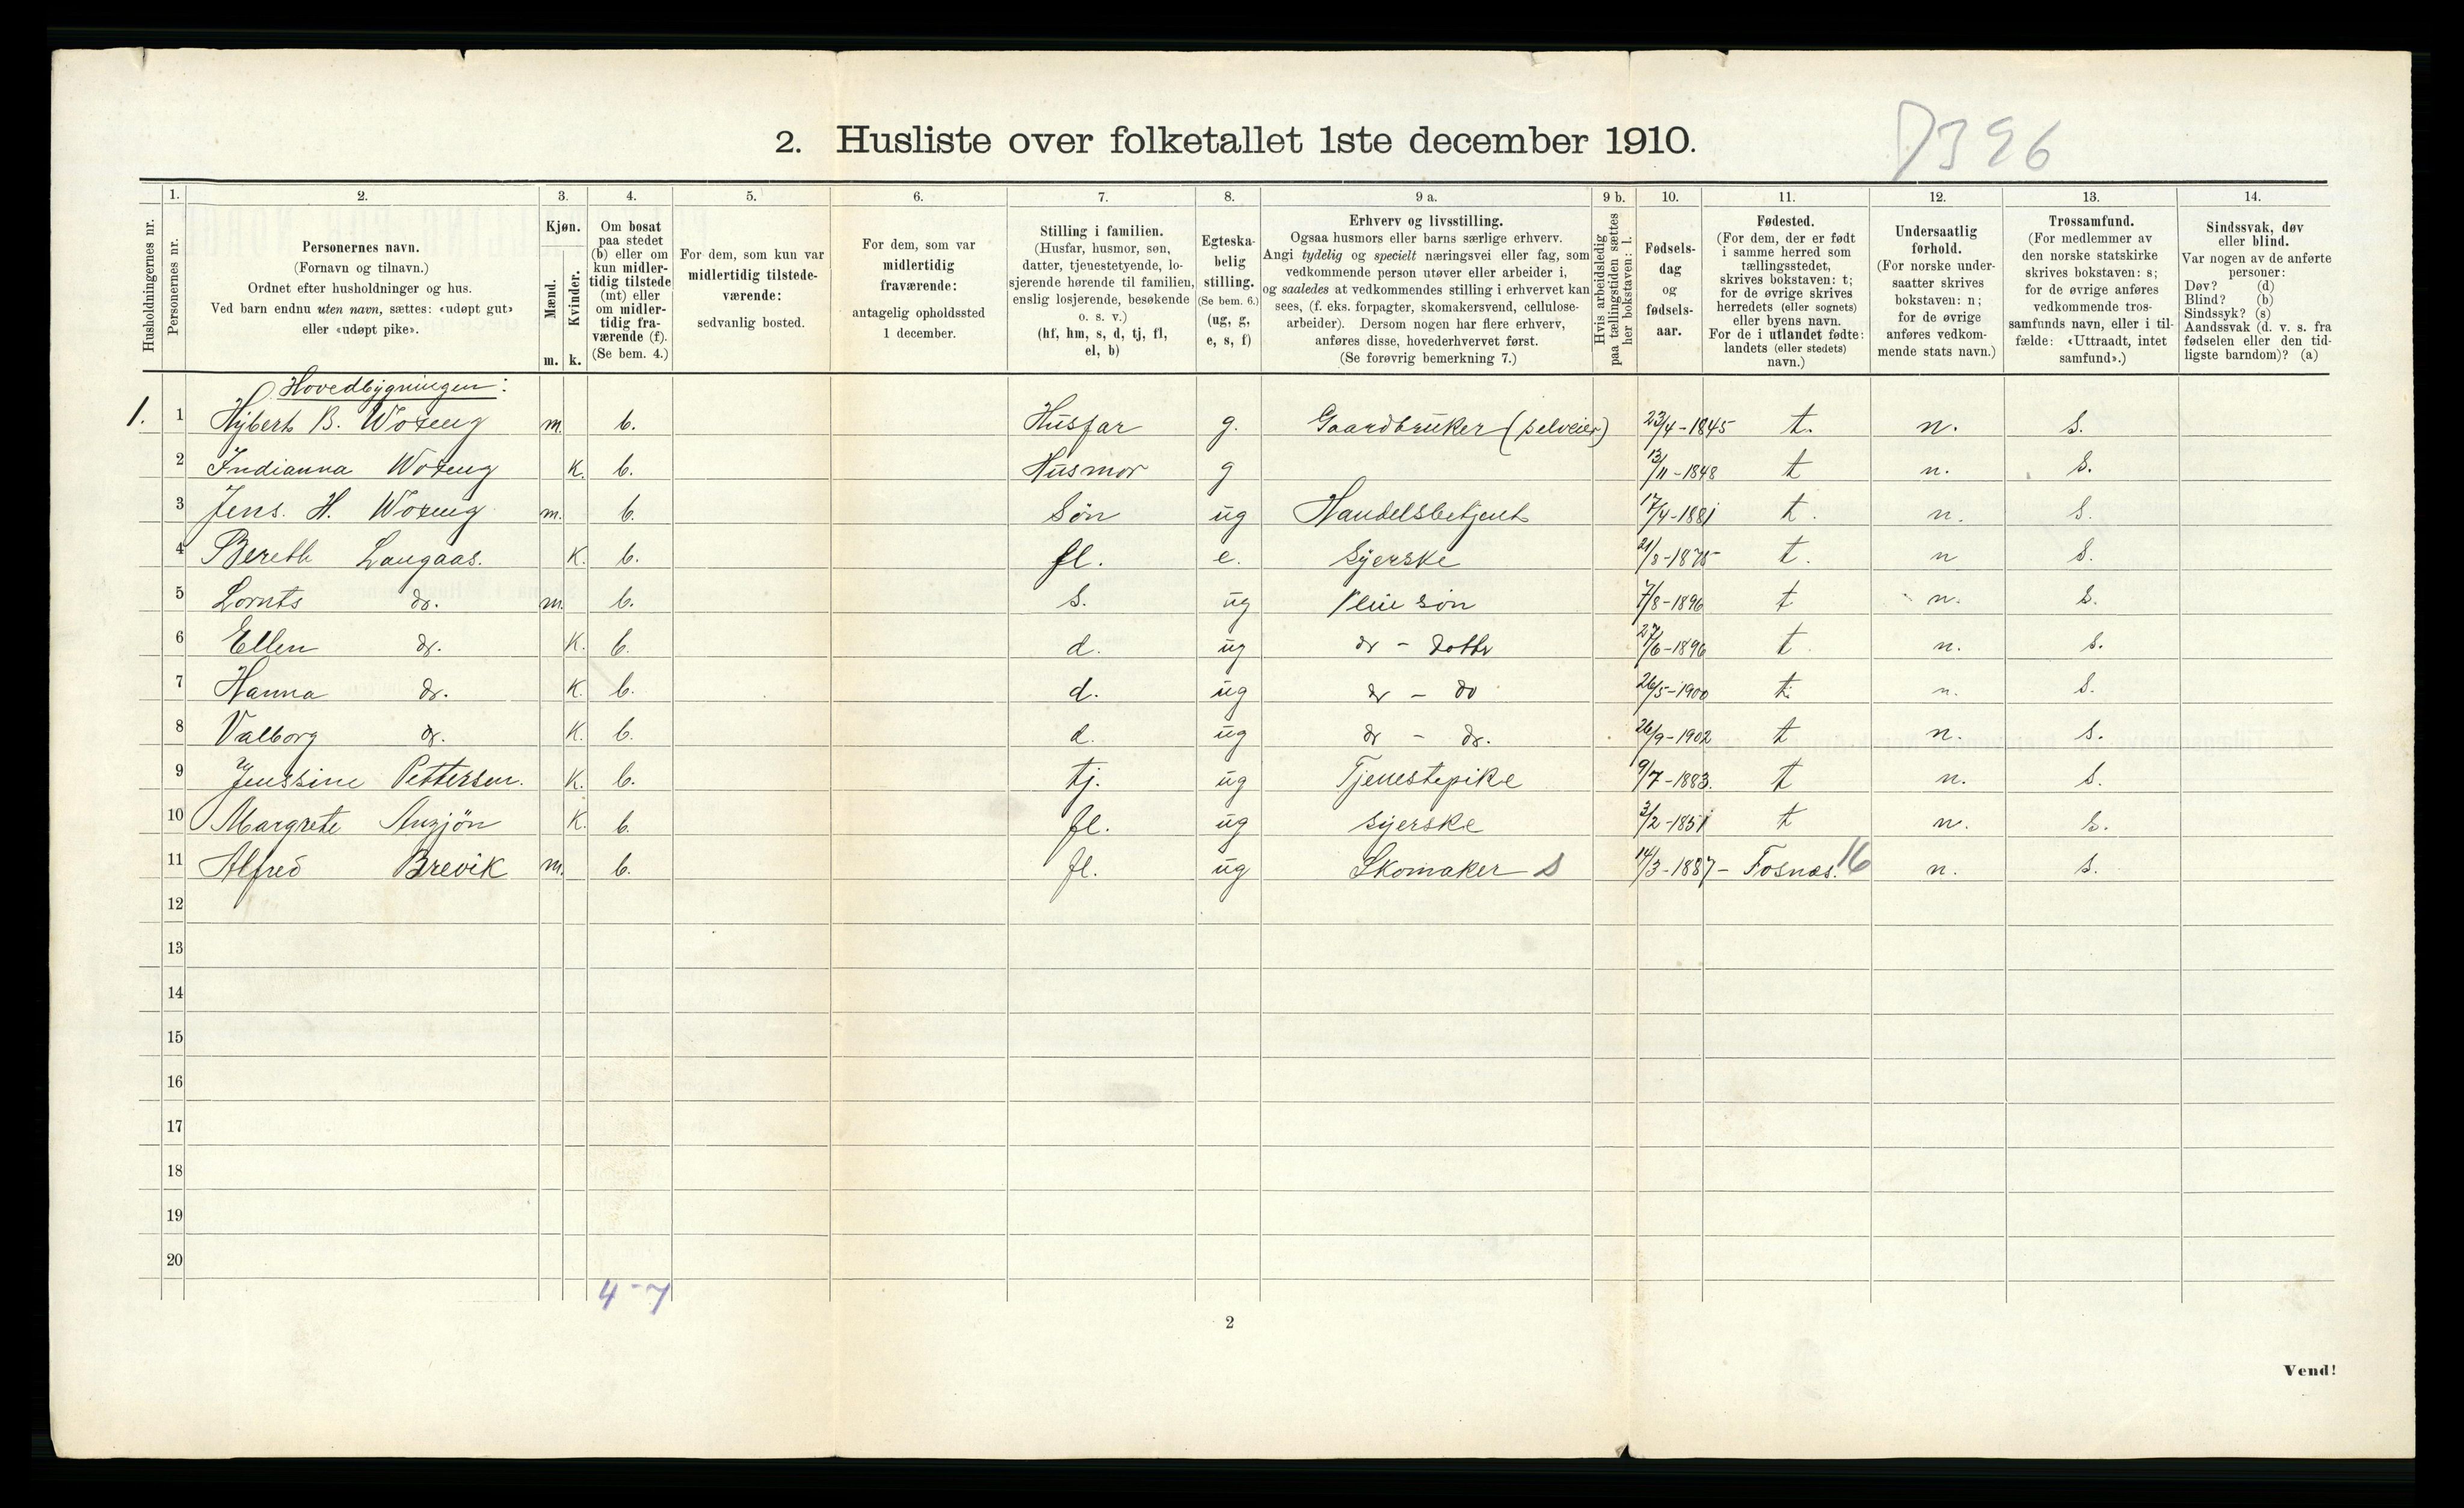 D396
2. Husliste over folketallet 1ste december 1910.
Husholdningernes nr.
1.
Personernes nr.
2.
Personernes navn.
(Fornavn og tilnavn.)
Ordnet efter husholdninger og hus.
Ved barn endnu uten navn, sættes: «udøpt gut»
eller «udøpt pike».
3.
Kjøn.
Mænd.
m.
Kvinder.
k.
4.
Om bosat
paa stedet
(b) eller om
kun midler-
tidig tilstede
(mt) eller
om midler-
tidig fra-
værende (f).
(Se bem. 4.)
5.
For dem, som kun var
midlertidig tilstede-
værende:
sedvanlig bosted.
6.
For dem, som var
midlertidig
fraværende:
antagelig opholdssted
1 december.
7.
Stilling i familien.
(Husfar, husmor, søn,
datter, tjenestetyende, lo-
sjerende hørende til familien,
enslig losjerende, besøkende
o. s. v.)
(hf, hm, s, d, tj, fl,
el, b)
8.
Egteska-
belig
stilling.
(Se bem. 6.)
(ug, g,
e, s, f)
9 a.
Erhverv og livsstilling.
Ogsaa husmors eller barns særlige erhverv.
Angi tydelig og specielt næringsvei eller fag, som
vedkommende person utøver eller arbeider i,
og saaledes at vedkommendes stilling i erhvervet kan
sees, (f. eks. forpagter, skomakersvend, cellulose-
arbeider). Dersom nogen har flere erhverv,
anføres disse, hovederhvervet først.
(Se forøvrig bemerkning 7.)
9 b.
Hvis arbeidsledig
paa tællingstiden sættes
her bokstaven: l.
10.
Fødsels-
dag
og
fødsels-
aar.
11.
Fødested.
(For dem, der er født
i samme herred som
tællingsstedet,
skrives bokstaven: t;
for de øvrige skrives
herredets (eller sognets)
eller byens navn.
For de i utlandet fødte:
landets (eller stedets)
navn.)
12.
Undersaatlig
forhold.
(For norske under-
saatter skrives
bokstaven: n;
for de øvrige
anføres vedkom-
mende stats navn.)
13.
Trossamfund.
(For medlemmer av
den norske statskirke
skrives bokstaven: s;
for de øvrige anføres
vedkommende tros-
samfunds navn, eller i til-
fælde: «Uttraadt, intet
samfund».)
14.
Sindssvak, døv
eller blind.
Var nogen av de anførte
personer:
Døv? (d)
Blind? (b)
Sindssyk? (s)
Aandssvak (d. v. s. fra
fødselen eller den tid-
ligste barndom)? (a)
Hovedbygningen:
1. 1 Hybert B. Woxeng m. b. Husfar g. Gaardbruker (selveier) 23/4-1845 t. n. s.
2 Indianna Woxeng K. b. Husmor g 13/11-1848 t n. s.
3 Jens. H. Woxeng m. b. Søn ug Handelsbetjent 17/4-1881 t. n. s.
4 Bereth Langaas. K. b. fl. e. Syerske 21/8-1875 t. n s.
5 Lornts do. m. b. s. ug søn 7/8-1896 t n. s.
6 Ellen do. K. b. d. ug do - Dotter 27/6-1896 t. n. s.
7 Hanna do. K. b. d. ug do - do 26/5-1900 t. n. s.
8 Valborg do. K. b. d. ug do - do. 26/9-1902 t n. s.
9 Jenssine Pettersen. K. b. tj. ug Tjenestepike 9/7-1883. t n. s.
10 Margrete Anzjøn K. b. fl. ug syerske 3/2-1851 t n. s.
11 Alfred Brevik m. b. fl. ug Skomaker s 14/3-1887- Fosnæs. 16 n. s.
12
13
14
15
16
17
18
19
20
4-7
2
Vend!